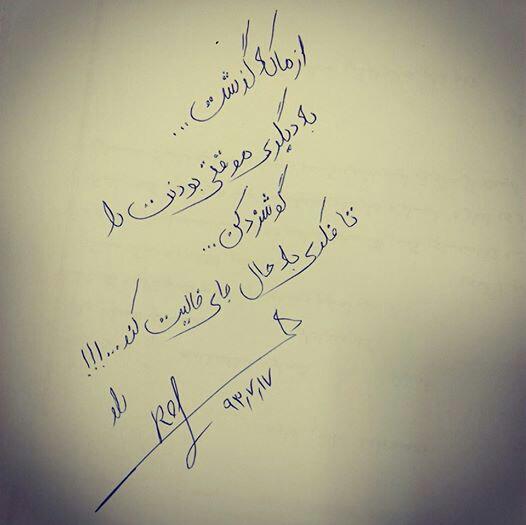 از ما که گذشت...
به دیگری موقتی بودنت را
گوشزد کن...
تا فکری به حال جای خالیت کند...!!!
۹۳,۷,۱۷